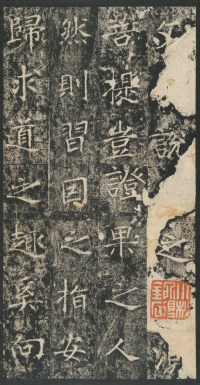 說之
菩提豈證果之人
然則習因之指安
歸求道之趣奚向